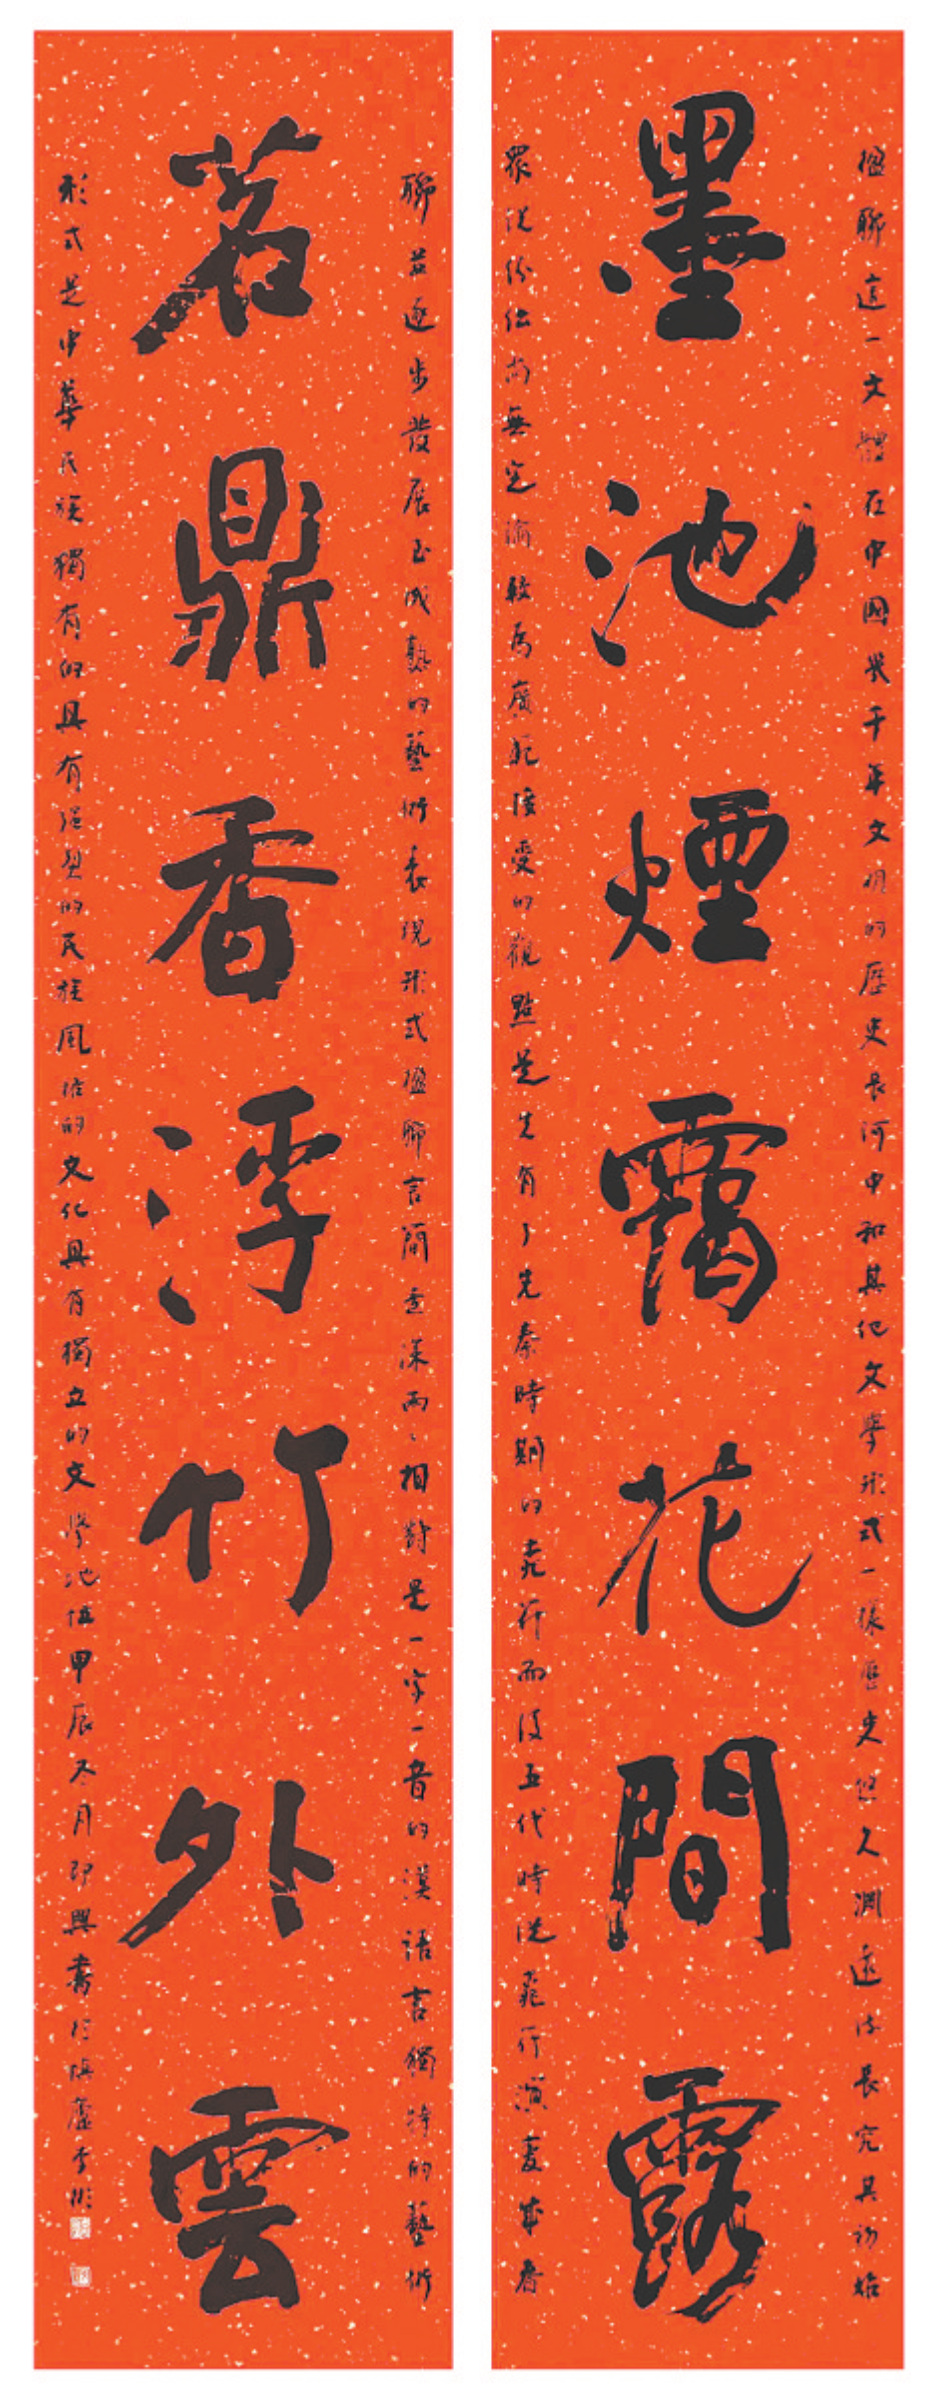 楹聯這一文體在中國數千年文明的歷史長河中和其他文學形式一樣歷史悠久淵遠流長究其初始
墨池煙靄花間露
眾說紛紜尚無定論較為廣範接受的觀點是先有了先秦時期的桃符而後五代時說桃符演變成春
聯並逐步發展至成熟的藝術表現形式楹聯言簡意深兩兩相對是一字一音的漢語言獨特的藝術
茗鼎香浮竹外雲
形式是中華民族獨有的具有強烈的民族風格的文化具有獨立的文學地位甲辰冬月即興書於